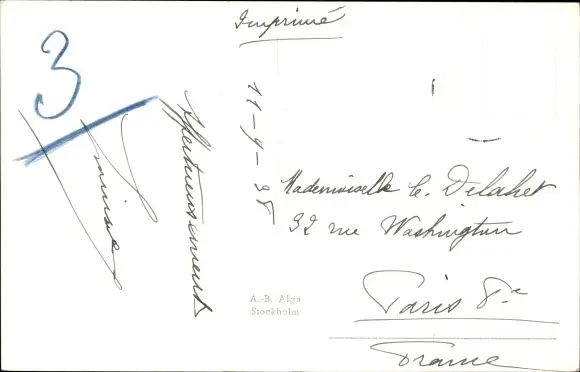 Imprimé
3
11-9-38
Affectueusement
Louise
Mademoiselle C. Delahet
32 rue Washington
Paris 8e
France
A.-B. Alga
Stockholm